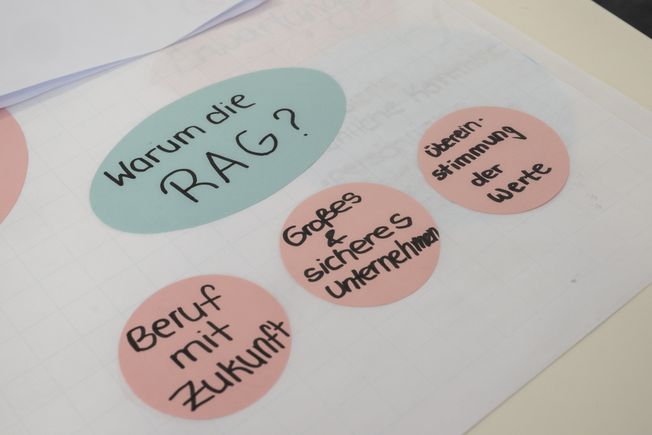 Warum die
RAG?
Überein-
stimmung
der
Werte
Großes
&
sicheres
Unternehmen
Beruf
mit
Zukunft